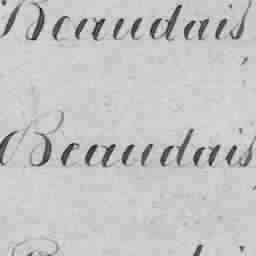 Beaudais
Beaudais